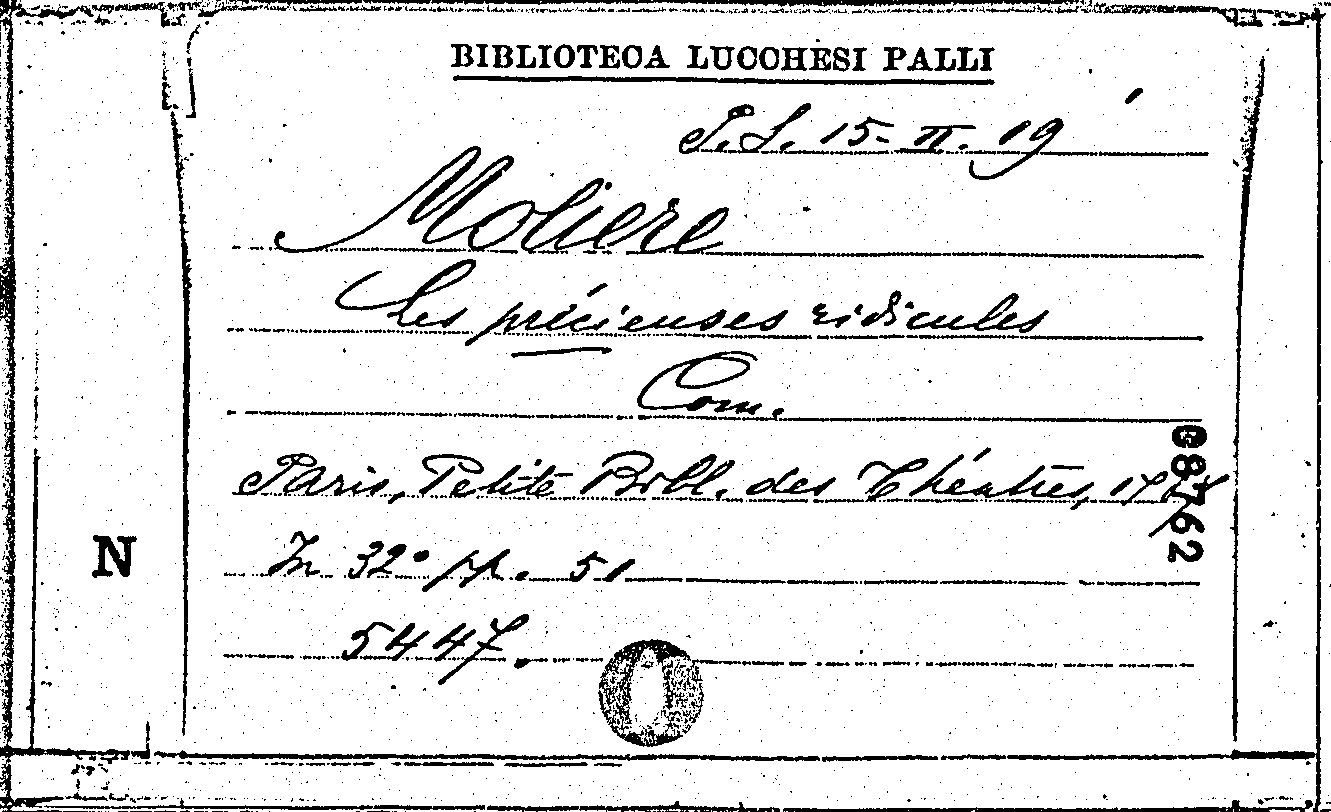 BIBLIOTECA LUCCHESI PALLI
P.S. 15-II. 19
Moliere
Les précieuses ridicules
Com.
Paris, Petite Bibl. des Théatres,
In 32° pp. 51
5447.
N
08762